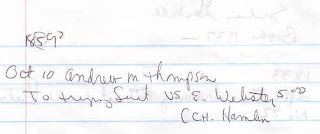 1859?
Oct 10 Andrew M Thompson
To trying Suit vs E. Webster 5.00
C CH. Hamlin